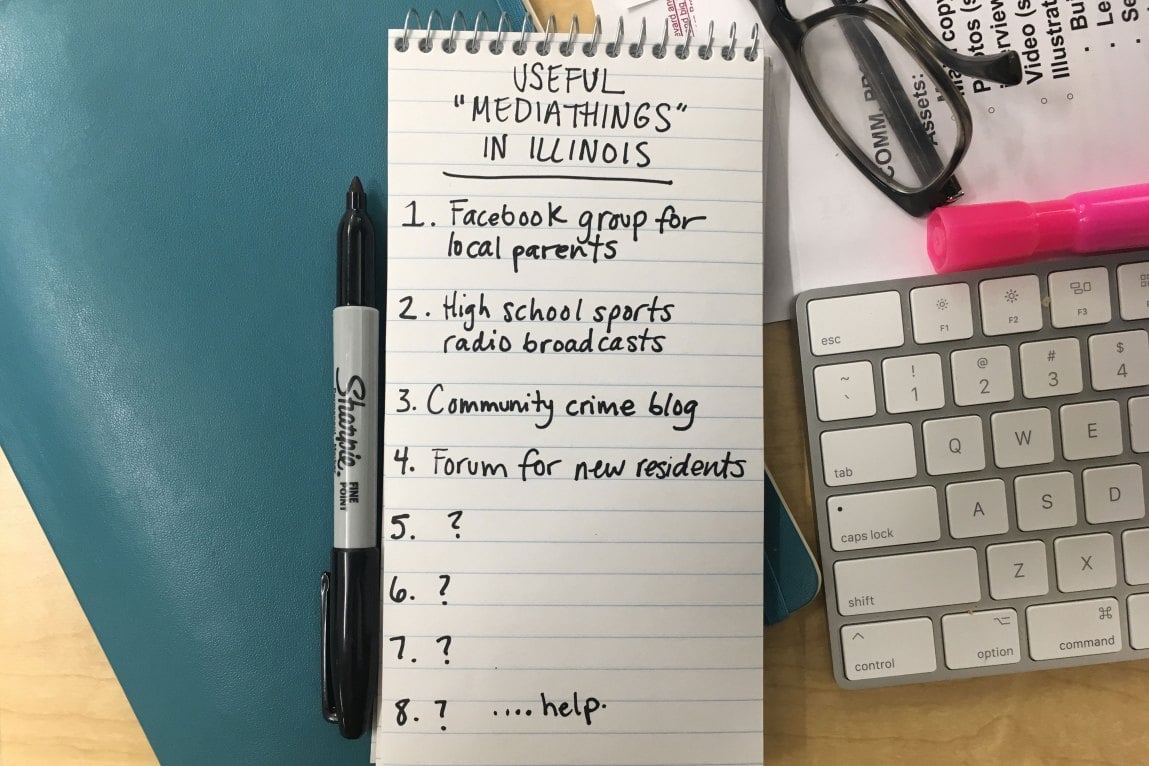 USEFUL
"MEDIATHINGS"
IN ILLINOIS
1. Facebook group for
local parents
2. High school sports
radio broadcasts
3. Community crime blog
4. Forum for new residents
5. ?
6. ?
7. ?
8. ? ....help.
Sharpie.
FINE
POINT
COMM.
Assets:
copy
Video (s
Illustrat
esc
F1
F2
F3
~
`
!
1
@
2
#
3
$
4
tab
Q
W
E
caps lock
A
S
D
shift
Z
X
^
control
option
⌘
command